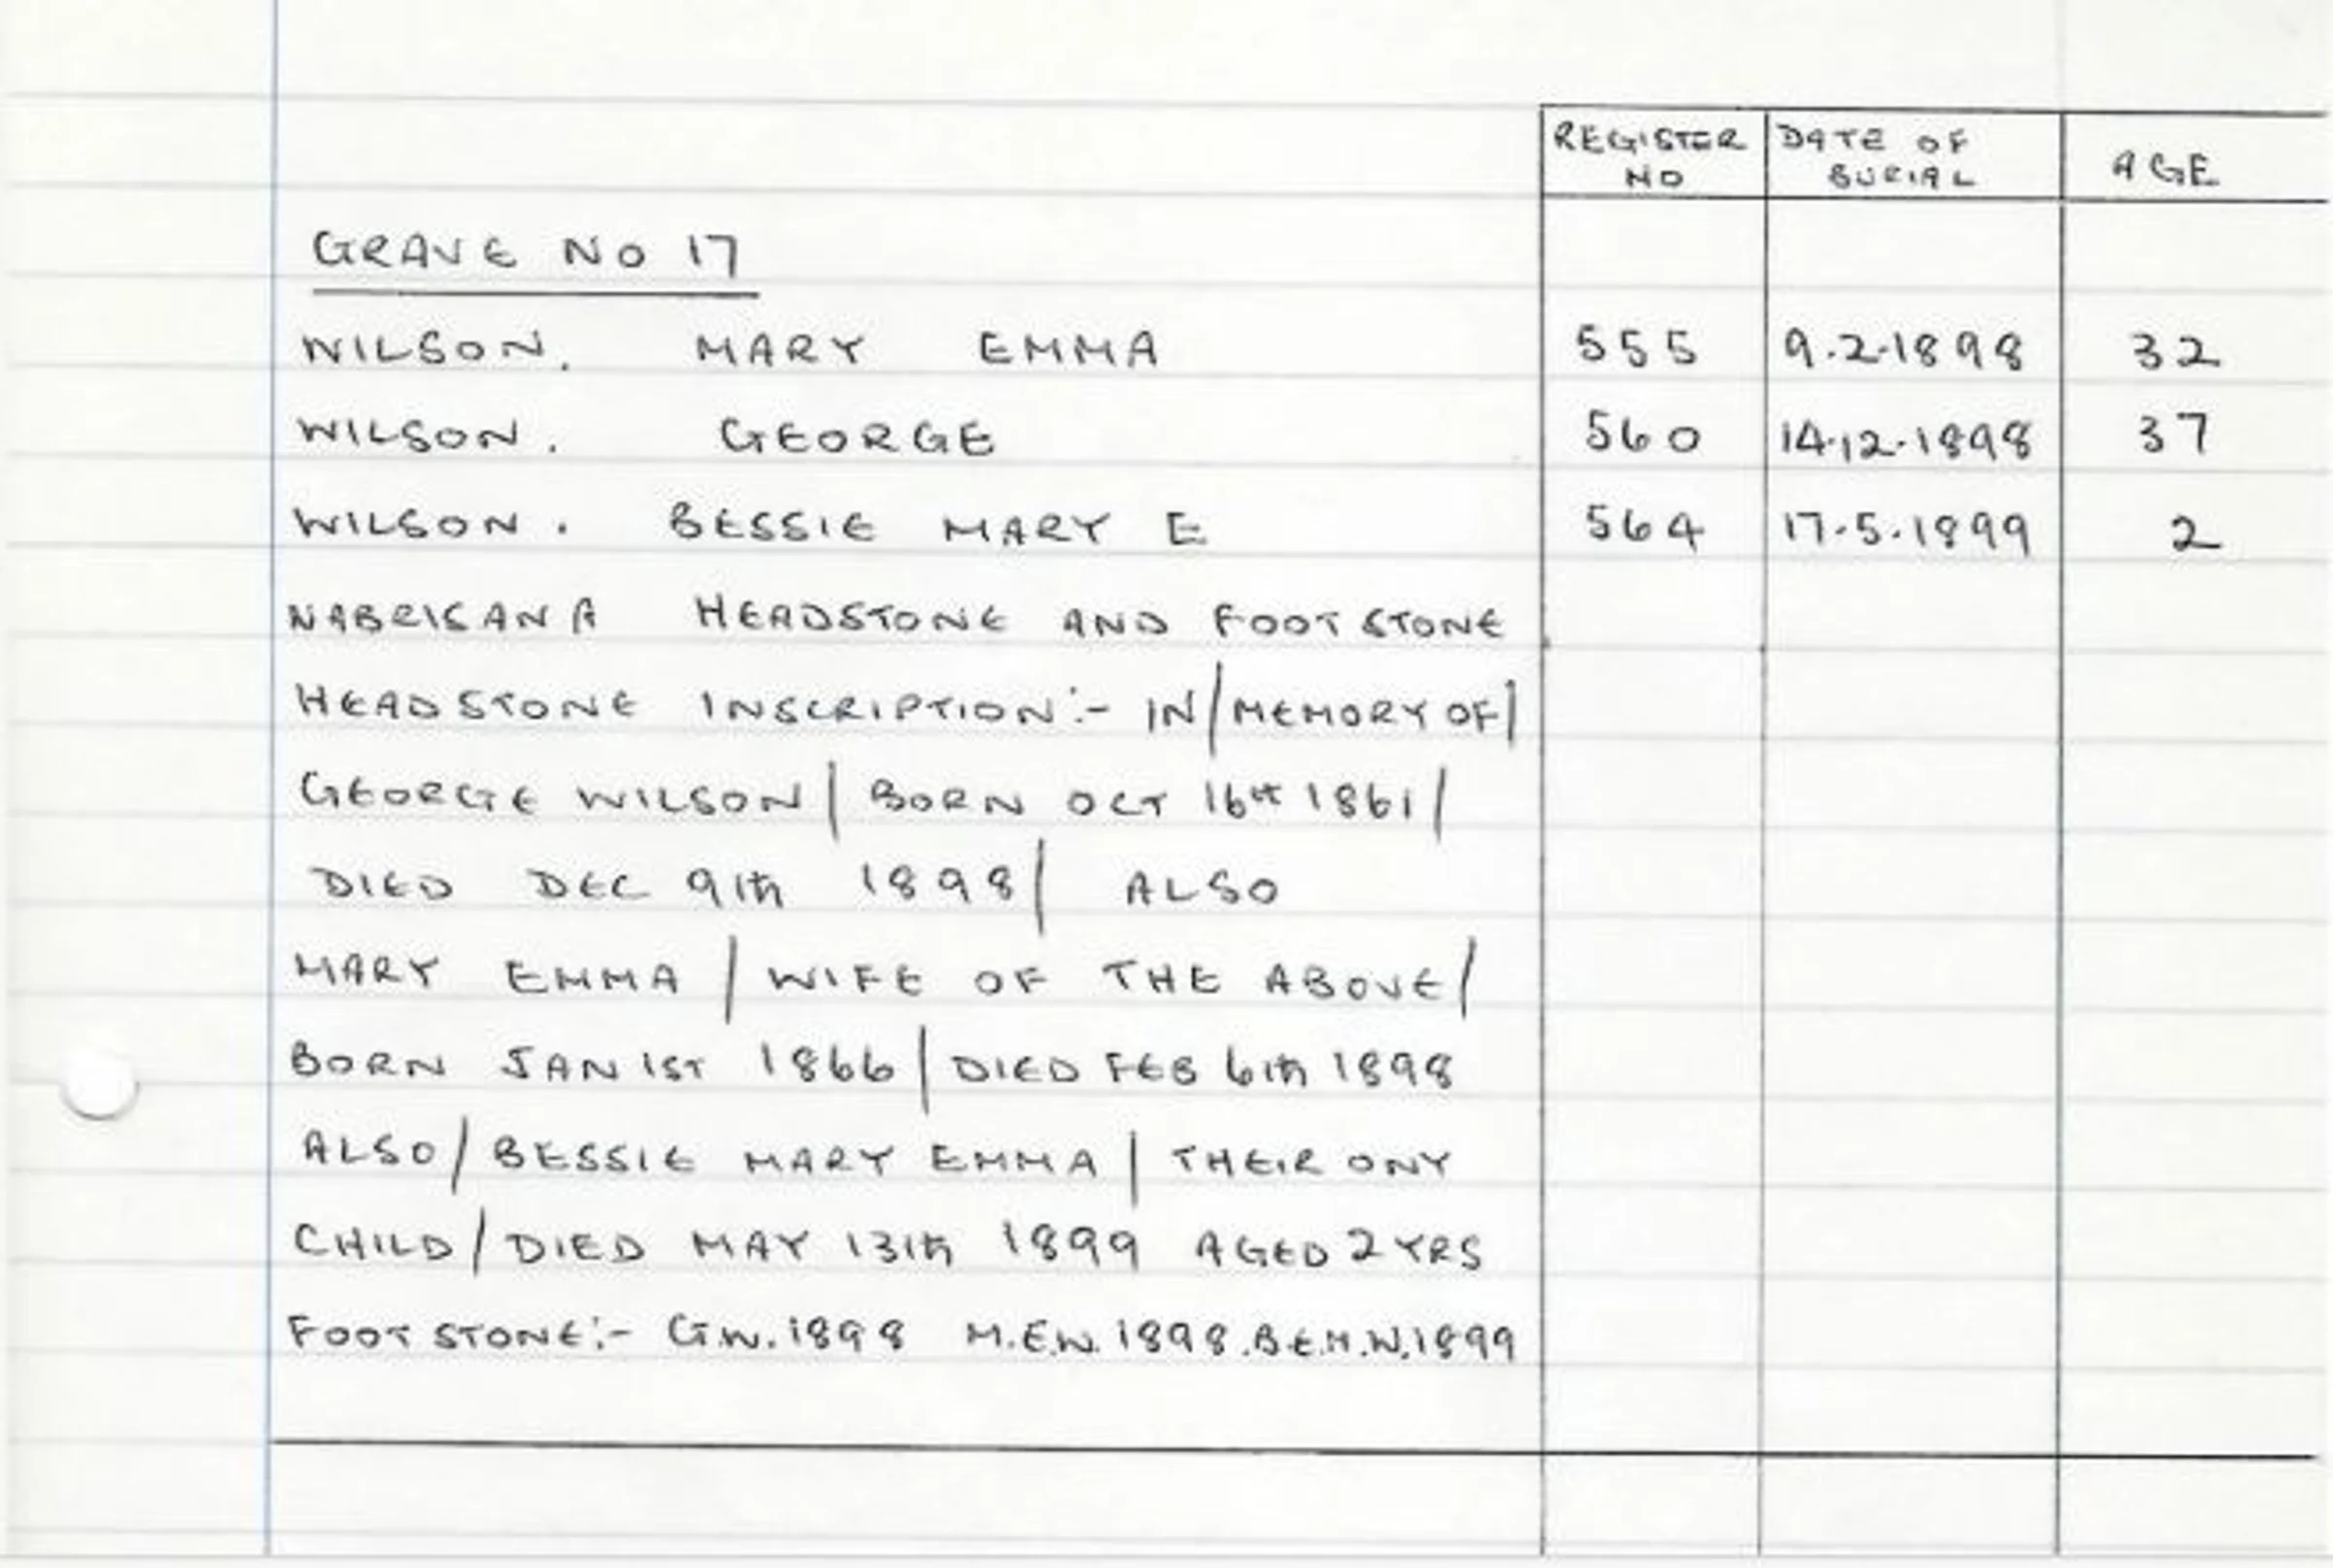 REGISTER NO DATE OF BURIAL AGE
GRAVE No 17
WILSON. MARY EMMA 555 9.2.1898 32
WILSON. GEORGE 560 14.12.1898 37
WILSON. BESSIE MARY E 564 17.5.1899 2
NABRISANA HEADSTONE AND FOOT STONE
HEADSTONE INSCRIPTION:- IN/MEMORY OF/
GEORGE WILSON/ BORN OCT 16th 1861/
DIED DEC 9th 1898/ ALSO
MARY EMMA / WIFE OF THE ABOVE/
BORN JAN 1ST 1866/DIED FEB 6th 1898
ALSO/BESSIE MARY EMMA/ THEIR ONY
CHILD/DIED MAY 13th 1899 AGED 2 YRS
FOOT STONE:- G.W. 1898 M.E.W. 1898. B.E.M.W. 1899